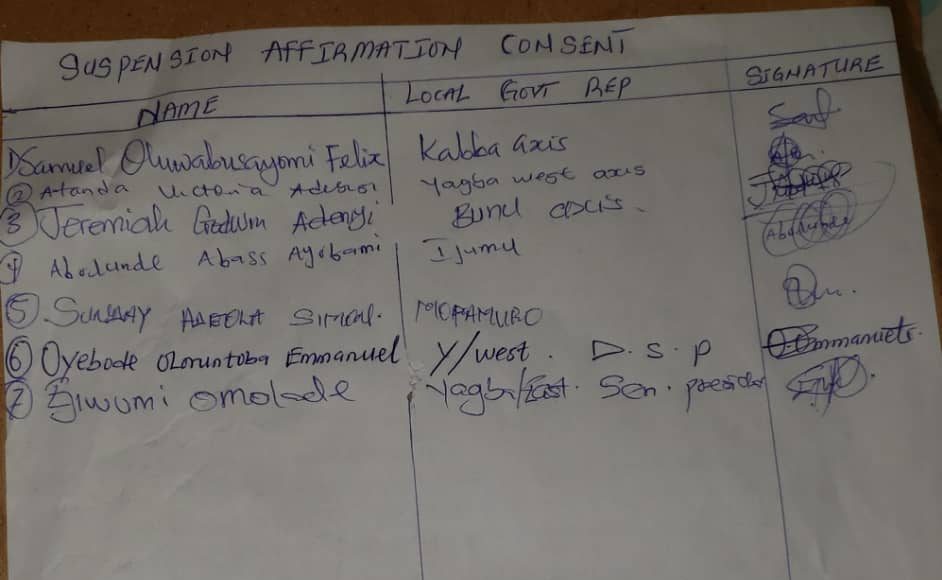 SUSPENSION AFFIRMATION CONSENT
NAME LOCAL GOVT REP SIGNATURE
1) Samuel Oluwabusayomi Felix Kabba axis
2 Atanda Victoria Adebisi Yagba west axis
3 Jeremiah Godwin Adeniyi Bunu axis.
4 Abodunde Abass Ayobami Ijumu
5. SUNDAY ADEOLA SIMON. MOPAMURO
6 Oyebode Oloruntoba Emmanuel Y/west. D.S.P Emmanuel
7 Ejiwumi omolade Yagba/East. Sen. president